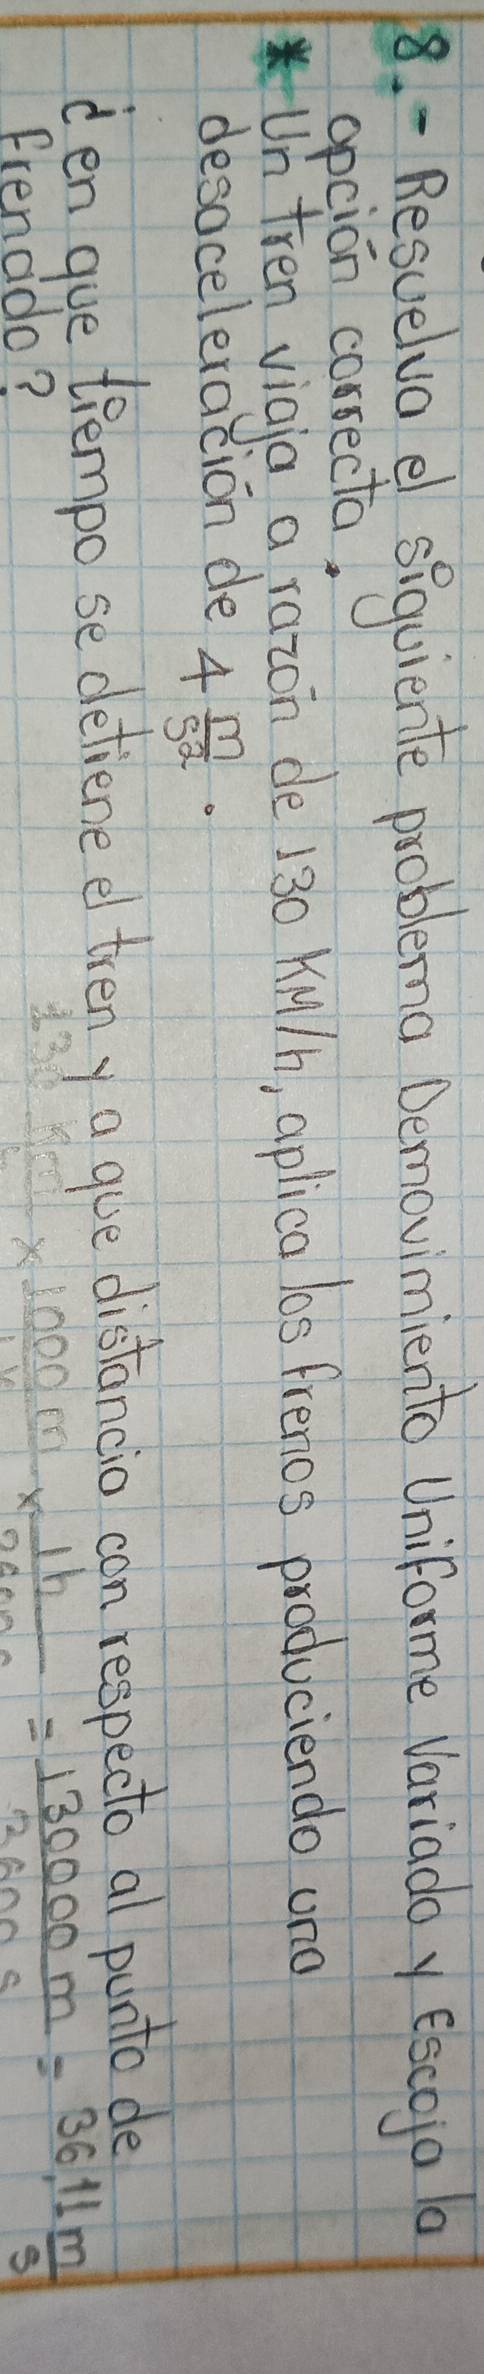 8.- Resuelva el siguiente problema Demovimiento Uniforme Variado y Escoja la
opción correcta.
* Un tren viaja a razón de 130 KM/h, aplica los frenos produciendo una
desaceleración de 4 m/s².
¿en que tiempo se detiene el tren y a que distancia con respecto al punto de
frenado?
130 km/h x 1000 m x 1h/3600s = 130000 m/3600 s = 36,11 m/s